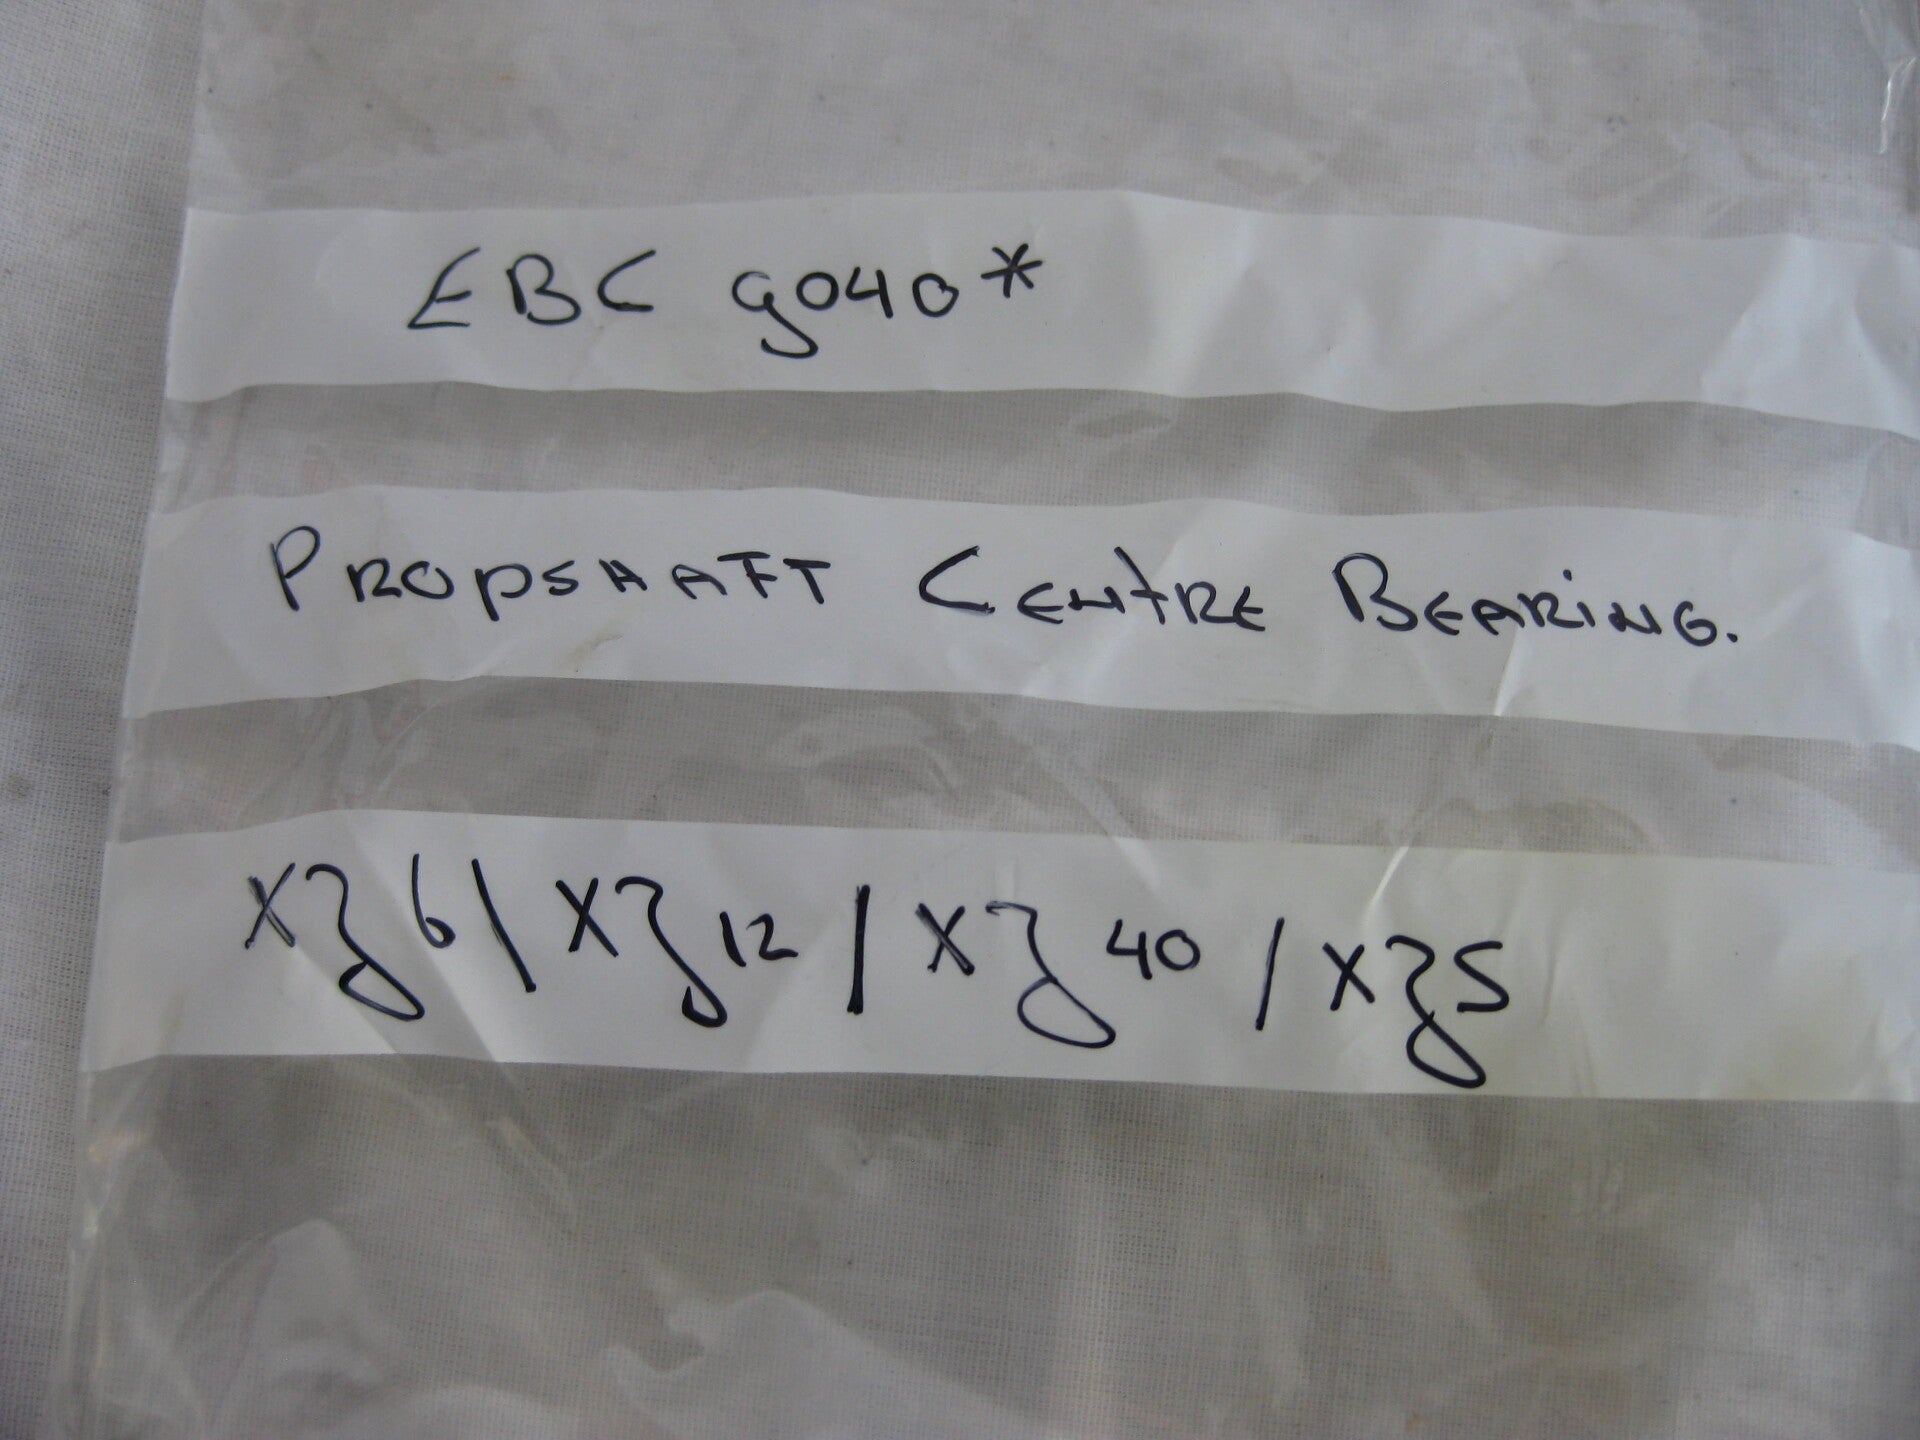 EBC 9040*
PROPSHAFT CENTRE BEARING.
XJ6 / XJ12 / XJ40 / XJS